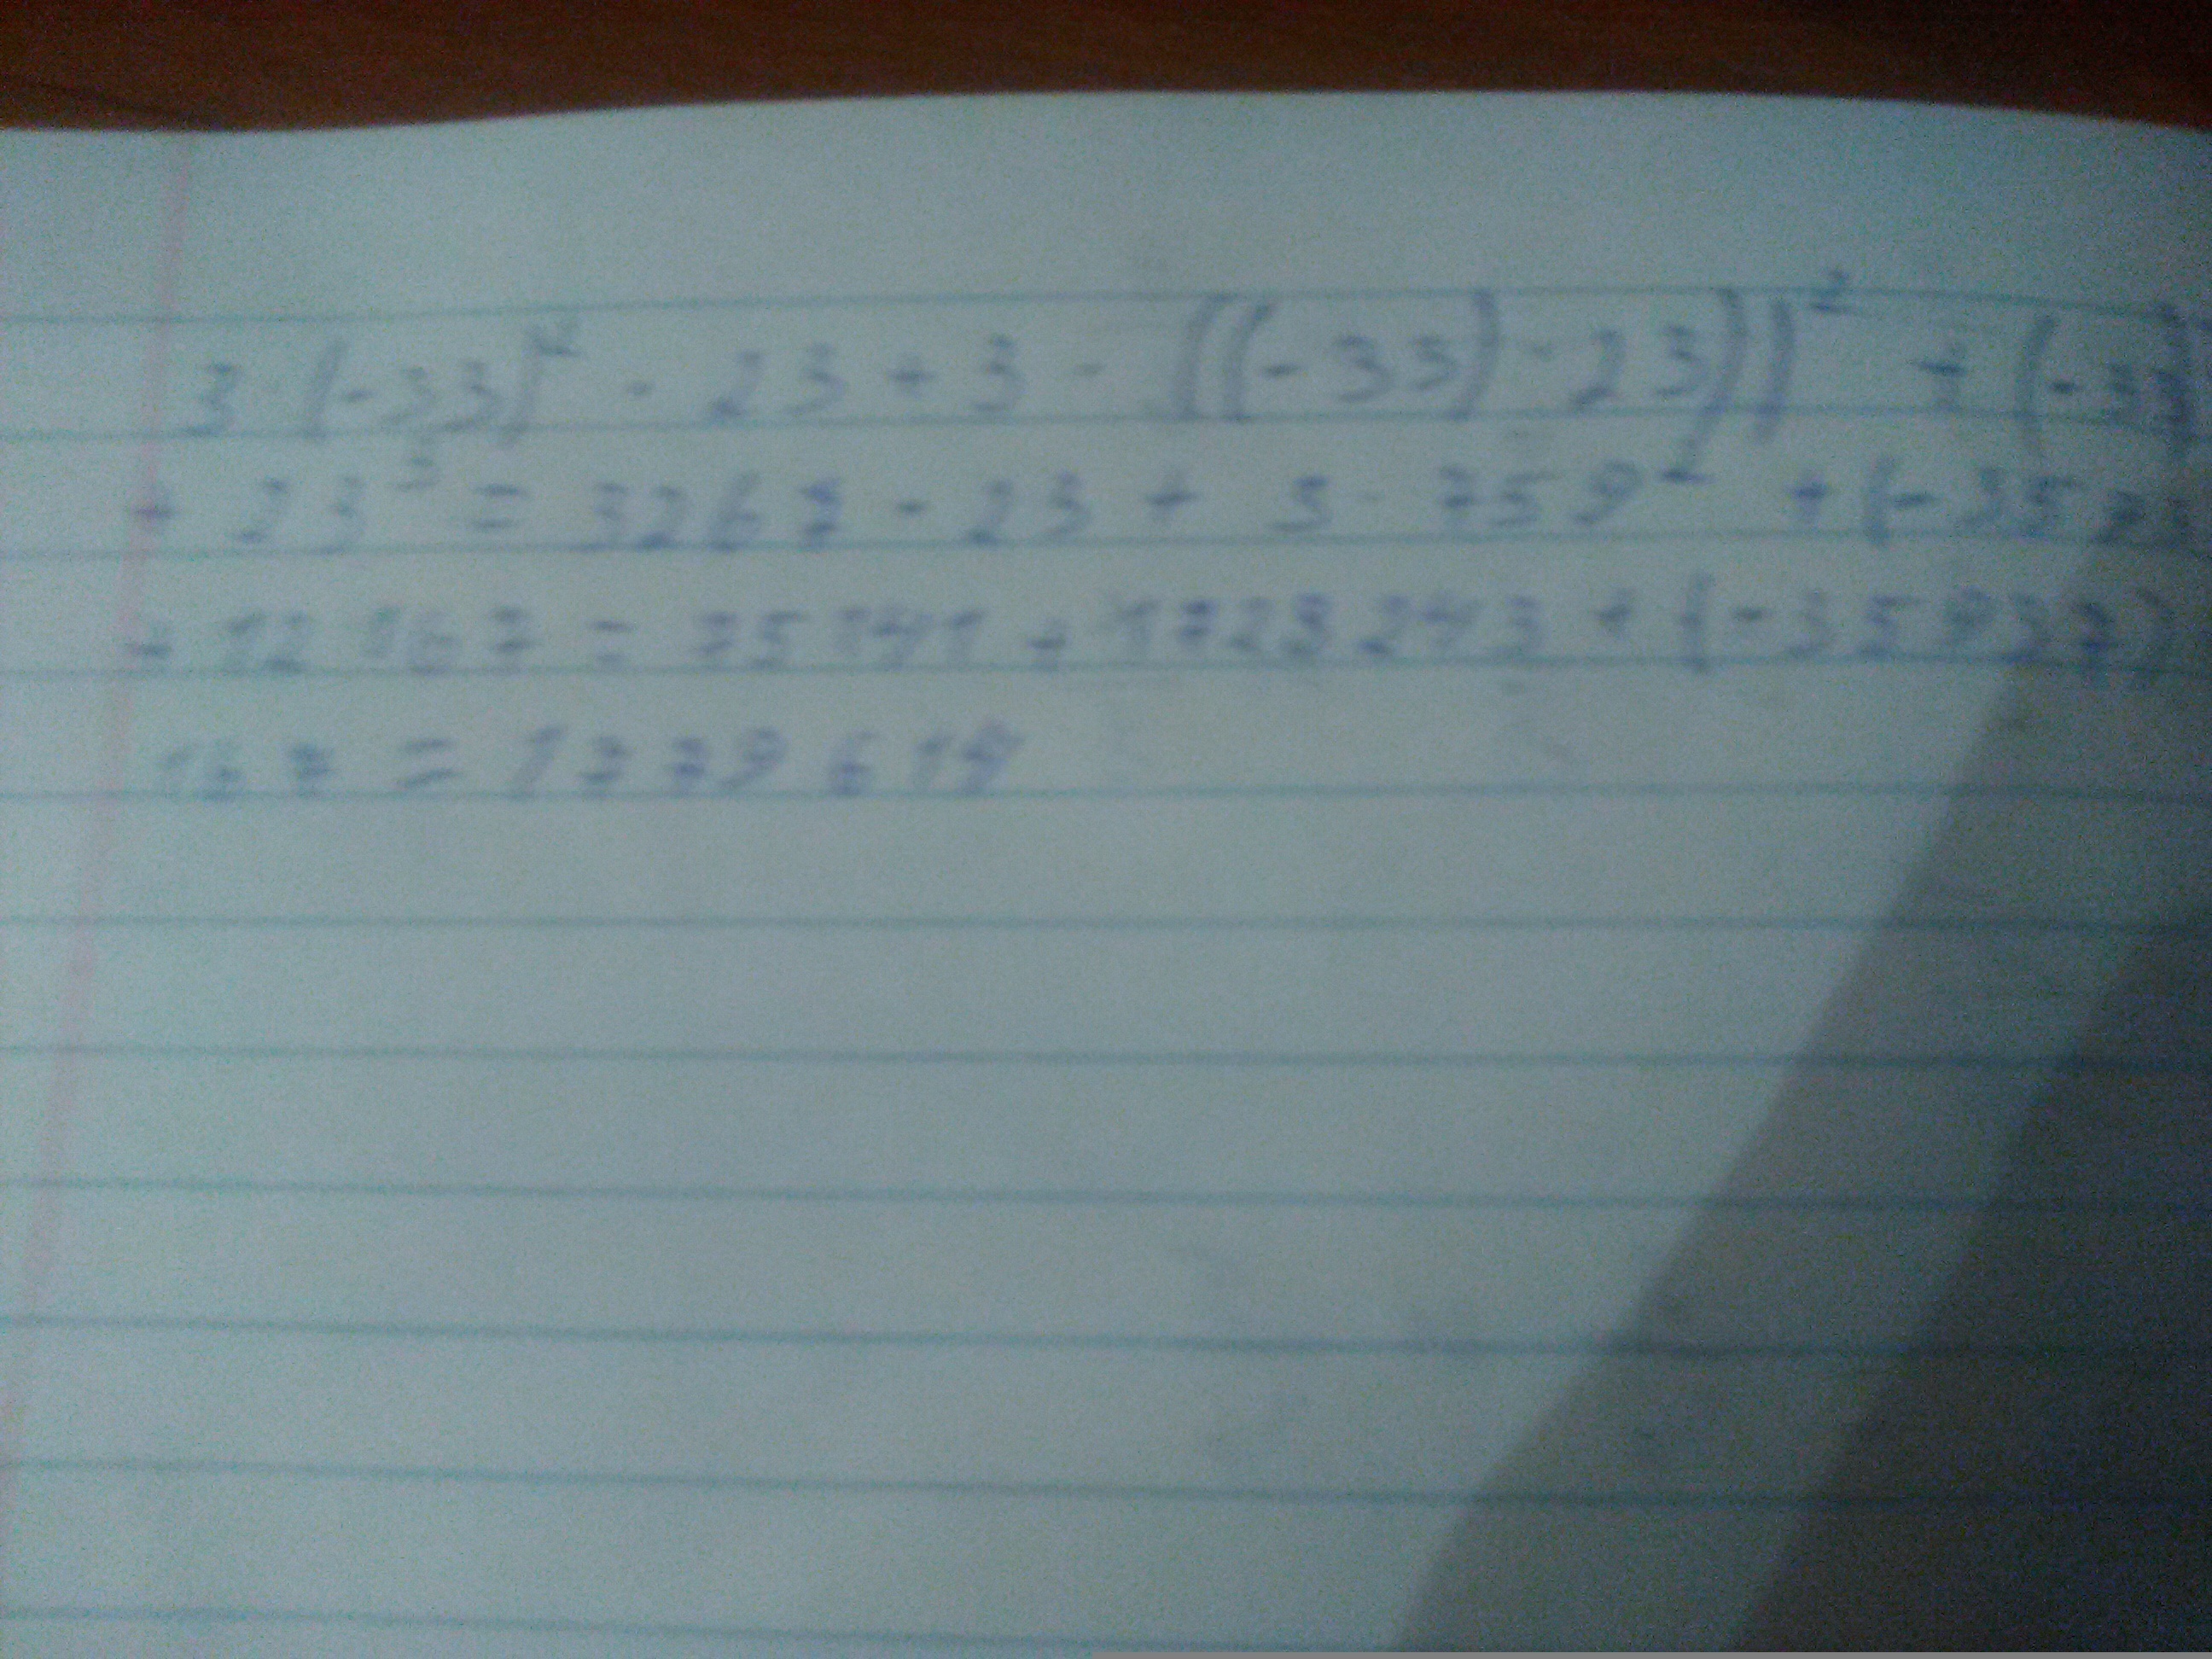 3 · (-33)² · 23 + 3 · (((-33) · 23))² + (-33)³
+ 23³ = 3267 · 23 + 3 · 759² + (-35937)
+ 12167 = 75141 + 1728243 + (-35937)
167 = 1779614